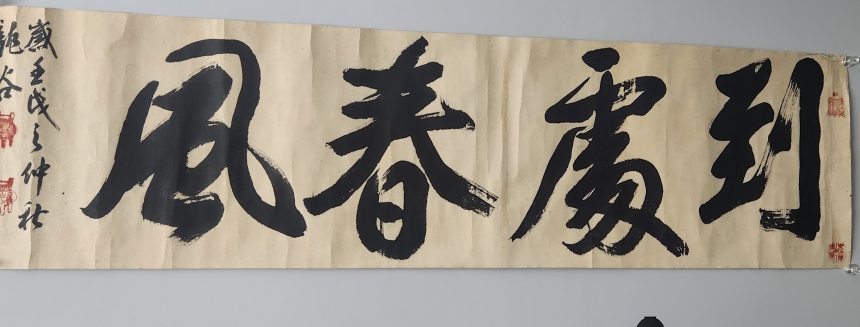 到處春風
歲壬戌之仲秋
龍谷